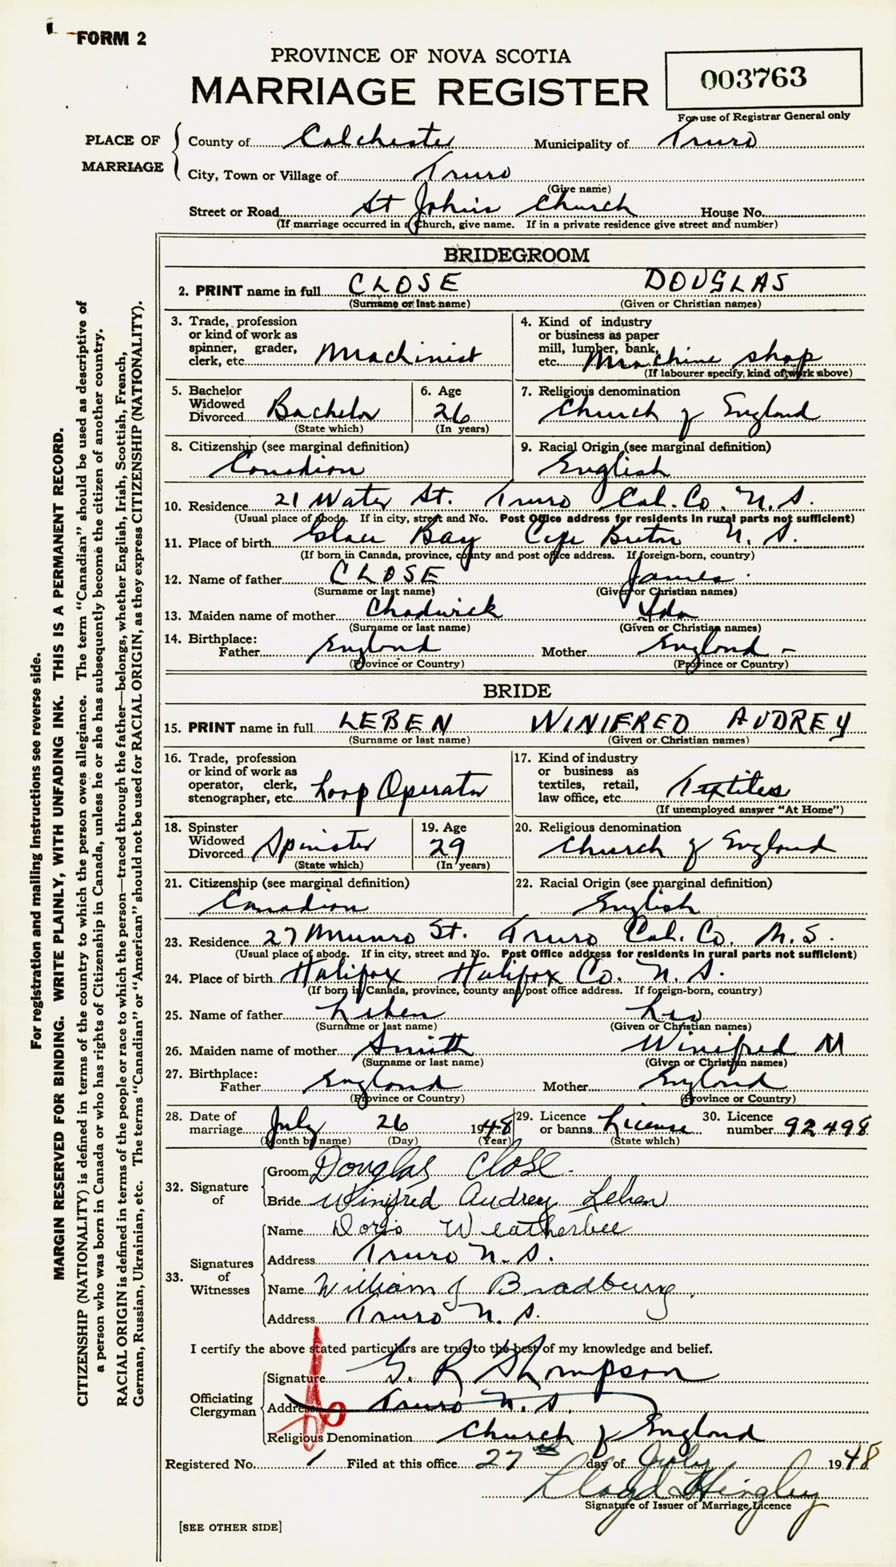 FORM 2
PROVINCE OF NOVA SCOTIA
MARRIAGE REGISTER
003763
For use of Registrar General only
PLACE OF MARRIAGE
County of Colchester Municipality of Truro
City, Town or Village of Truro
(Give name)
Street or Road St John's Church House No.
(If marriage occurred in a Church, give name. If in a private residence give street and number)
BRIDEGROOM
2. PRINT name in full CLOSE DOUGLAS
(Surname or last name) (Given or Christian names)
3. Trade, profession or kind of work as spinner, grader, clerk, etc. Machinist
4. Kind of industry or business as paper mill, lumber, bank, etc. Machine shop
(If labourer specify, kind of work above)
5. Bachelor Widowed Divorced Bachelor
(State which)
6. Age 26
(In years)
7. Religious denomination Church of England
8. Citizenship (see marginal definition) Canadian
9. Racial Origin (see marginal definition) English
10. Residence 21 Water St. Truro Col. Co. N. S.
(Usual place of abode. If in city, street and No. Post Office address for residents in rural parts not sufficient)
11. Place of birth Glace Bay Cape Breton N. S.
(If born in Canada, province, county and post office address. If foreign-born, country)
12. Name of father CLOSE James
(Surname or last name) (Given or Christian names)
13. Maiden name of mother Chadwick Ida
(Surname or last name) (Given or Christian names)
14. Birthplace:
Father England Mother England -
(Province or Country) (Province or Country)
BRIDE
15. PRINT name in full LEBEN WINIFRED AUDREY
(Surname or last name) (Given or Christian names)
16. Trade, profession or kind of work as operator, clerk, stenographer, etc. Loop Operator
17. Kind of industry or business as textiles, retail, law office, etc. Textiles
(If unemployed answer "At Home")
18. Spinster Widowed Divorced Spinster
(State which)
19. Age 29
(In years)
20. Religious denomination Church of England
21. Citizenship (see marginal definition) Canadian
22. Racial Origin (see marginal definition) English
23. Residence 27 Munro St. Truro Col. Co. N. S.
(Usual place of abode. If in city, street and No. Post Office address for residents in rural parts not sufficient)
24. Place of birth Halifax Halifax Co. N. S.
(If born in Canada, province, county and post office address. If foreign-born, country)
25. Name of father Leben Leo
(Surname or last name) (Given or Christian names)
26. Maiden name of mother Smith Winifred M
(Surname or last name) (Given or Christian names)
27. Birthplace:
Father England Mother England
(Province or Country) (Province or Country)
28. Date of marriage July 26 1948
(Month by name) (Day) (Year)
29. Licence or banns License
(State which)
30. Licence number 92498
32. Signature of
Groom Douglas Close.
Bride Winifred Audrey Leben
33. Signatures of Witnesses
Name Doris Weatherbee
Address Truro N. S.
Name William J Bradbury
Address Truro N. S.
I certify the above stated particulars are true to the best of my knowledge and belief.
Officiating Clergyman
Signature G. R Thompson
Address Truro N. S.
Religious Denomination Church of England
Registered No. 1 Filed at this office 27th day of July 1948
Lloyd Hingley
Signature of Issuer of Marriage Licence
[SEE OTHER SIDE]
For registration and mailing instructions see reverse side.
MARGIN RESERVED FOR BINDING. WRITE PLAINLY, WITH UNFADING INK. THIS IS A PERMANENT RECORD.
CITIZENSHIP (NATIONALITY) is defined in terms of the country to which the person owes allegiance. The term "Canadian" should be used as descriptive of
a person who was born in Canada or who has rights of Citizenship in Canada, unless he or she has subsequently become the citizen of another country.
RACIAL ORIGIN is defined in terms of the people or race to which the person—traced through the father—belongs, whether English, Irish, Scottish, French,
German, Russian, Ukrainian, etc. The terms "Canadian" or "American" should not be used for RACIAL ORIGIN, as they express CITIZENSHIP (NATIONALITY).